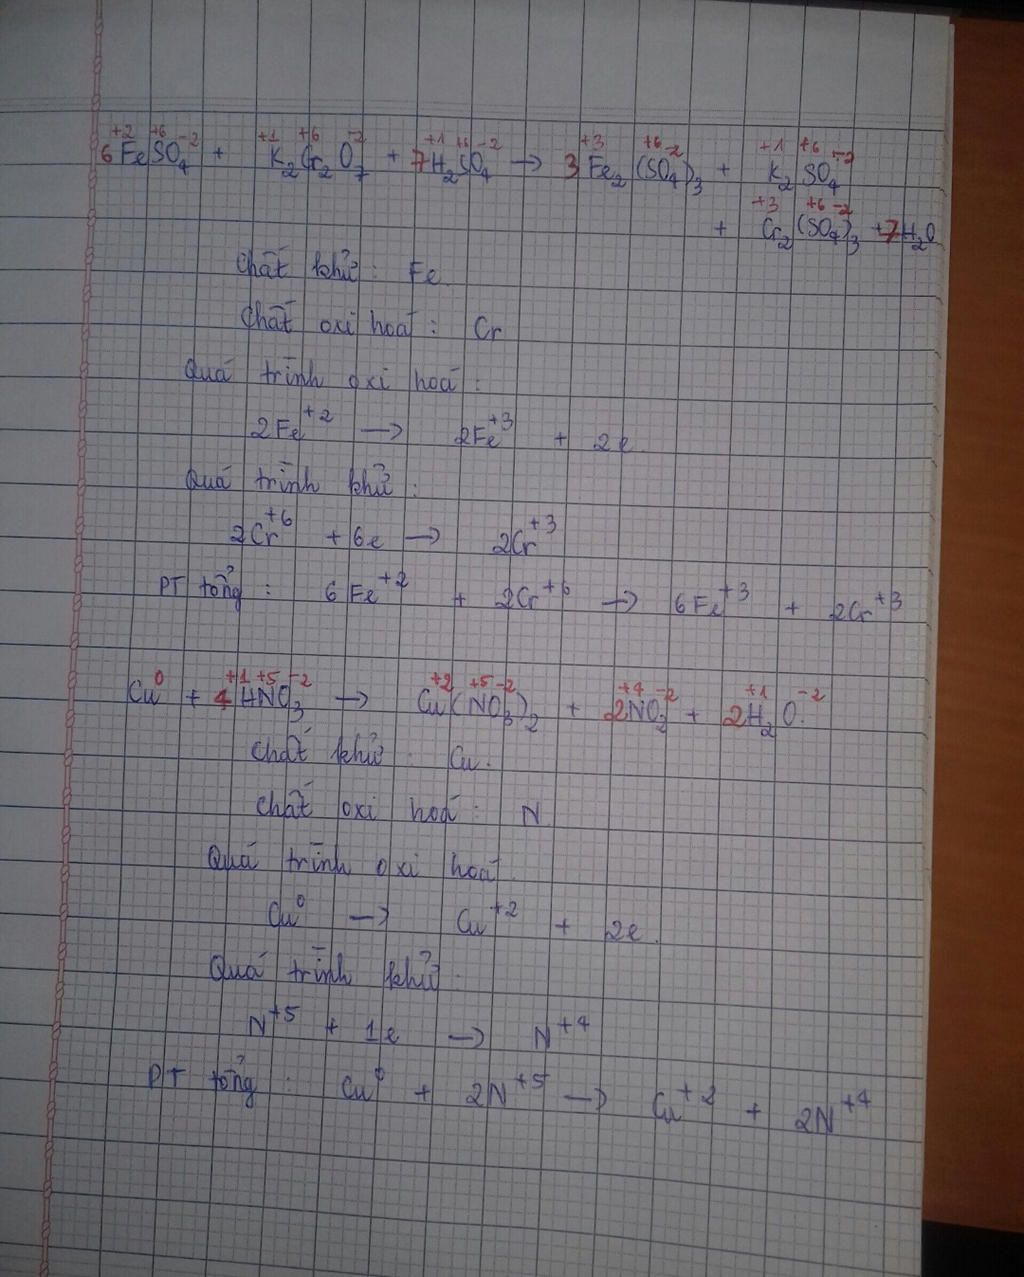 +2 +6 -2 +1 +6 -2 +1 +6 -2 +3 +6 -2 +1 +6 -2
6FeSO4 + K2Cr2O7 + 7H2SO4 → 3Fe2(SO4)3 + K2SO4
+3 +6 -2
+ Cr2(SO4)3 + 7H2O
Chất khử: Fe.
Chất oxi hoá: Cr
Quá trình oxi hoá:
2Fe+2 → 2Fe+3 + 2e.
Quá trình khử:
2Cr+6 + 6e → 2Cr+3
PT tổng: 6Fe+2 + 2Cr+6 → 6Fe+3 + 2Cr+3
0 +1 +5 -2 +2 +5 -2 +4 -2 +1 -2
Cu + 4HNO3 → Cu(NO3)2 + 2NO2 + 2H2O.
Chất khử: Cu.
Chất oxi hoá: N.
Quá trình oxi hoá.
Cu0 → Cu+2 + 2e.
Quá trình khử.
N+5 + 1e → N+4
PT tổng: Cu0 + 2N+5 → Cu+2 + 2N+4